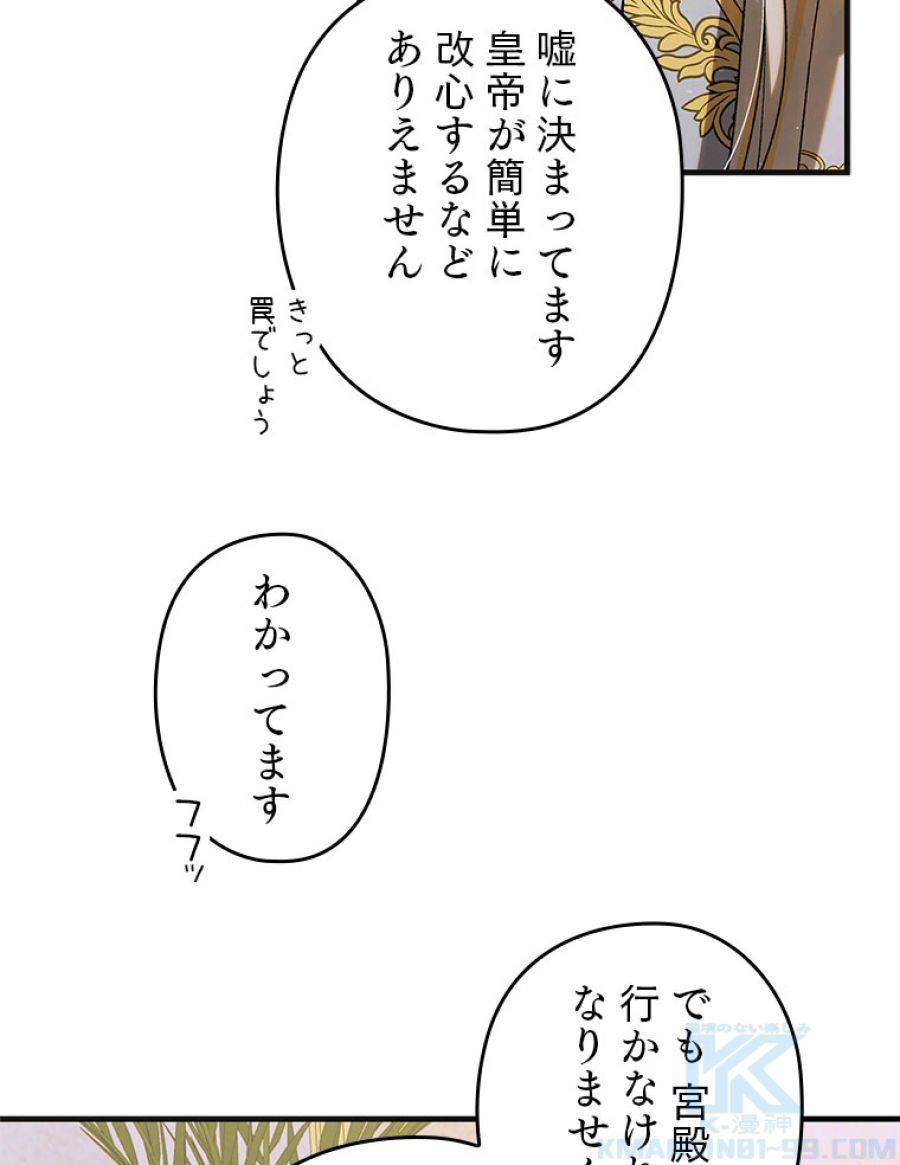 嘘に決まってます
皇帝が簡単に
改心するなど
ありえません
きっと
罠でしょう
わかってます
フフッ
でも宮殿
行かなけ
なりませ
環境のない楽しみ
K
K-漫神
KMANJIN01-99.COM